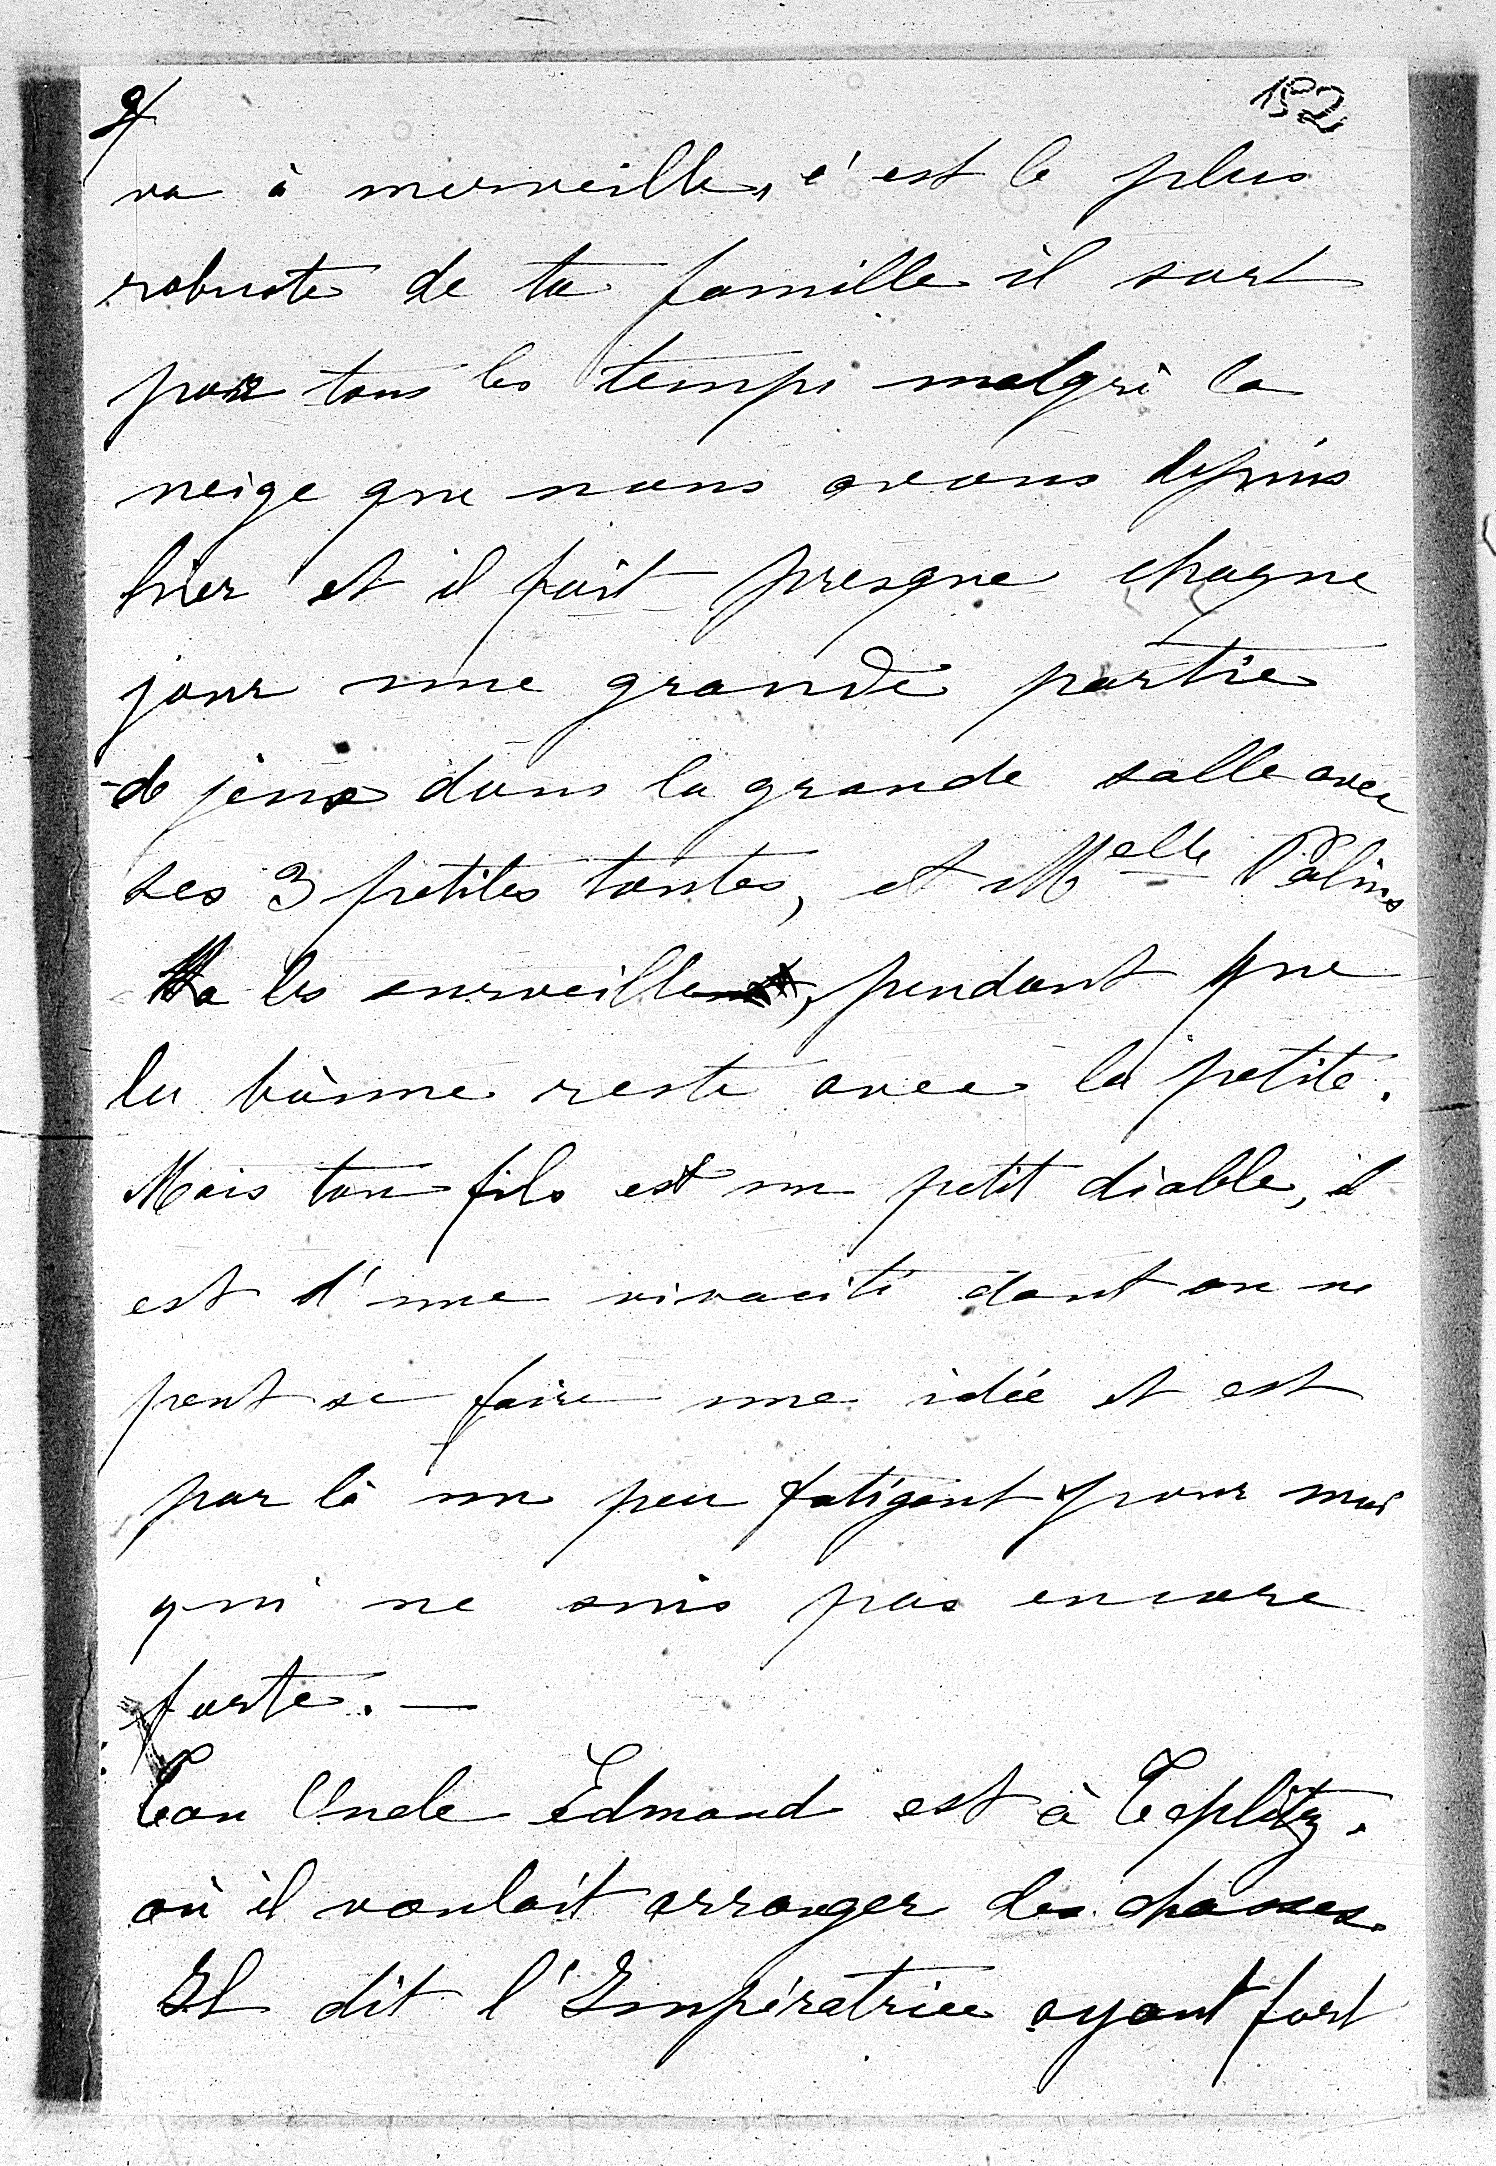 2/
152
va à merveille, c'est le plus
robuste de ta famille il sort
par tous les temps malgré la
neige que nous avons depuis
hier et il fait presque chaque
jour une grande partie
de jeux dans la grande salle avec
ses 3 petites tantes, et Melle Paline
va les surveiller, pendant que
la bonne reste avec la petite.
Mais ton fils est un petit diable, il
est d'une vivacité dont on ne
peut se faire une idée et est
par là un peu fatigant pour moi
qui ne suis pas encore
forte. —
Ton Oncle Edmond est à Teplitz.
où il voulait arranger des chasses.
Il dit l'Impératrice ayant fort